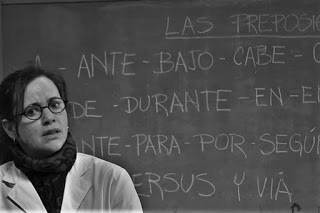 LAS PREPOSIC
A - ANTE - BAJO - CABE - C
DE - DURANTE - EN - E
NTE - PARA - POR - SEGÚ
VERSUS Y VÍA